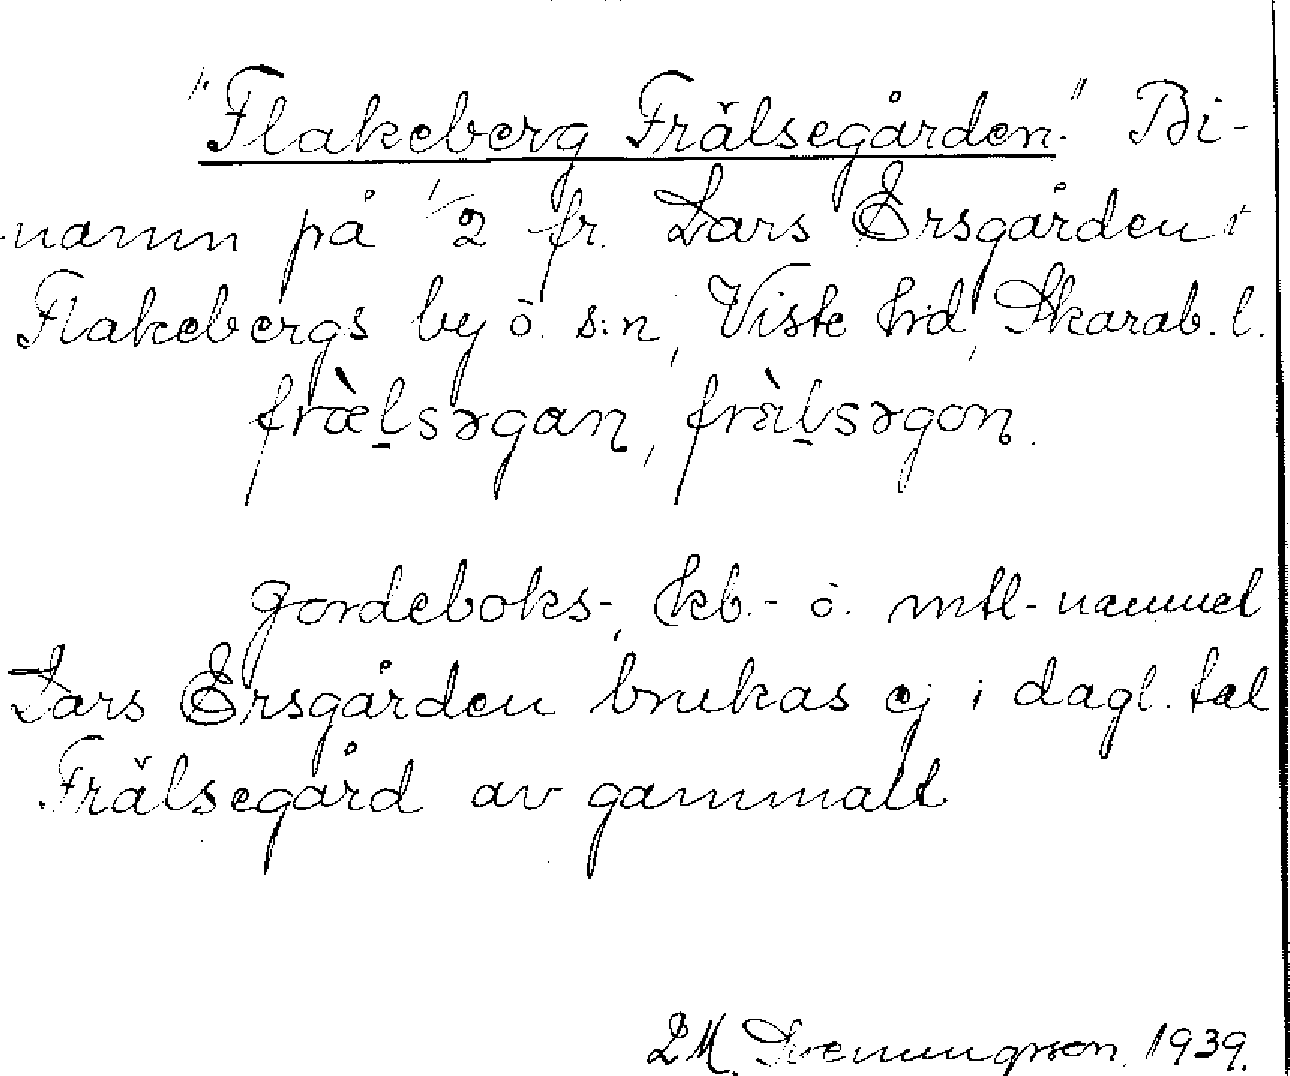 "Flakeberg Frälsegården." Bi-
namn på 1/2 fr. Lars Ersgården i
Flakebergs by o. s:n, Viste hrd, Skarab. l.
fræ̀lsəgan, frälsəgon.
Jordeboks-, kb.- o. mtl-namnet
Lars Ersgården brukas ej i dagl. tal
Frälsegård av gammalt
1939.